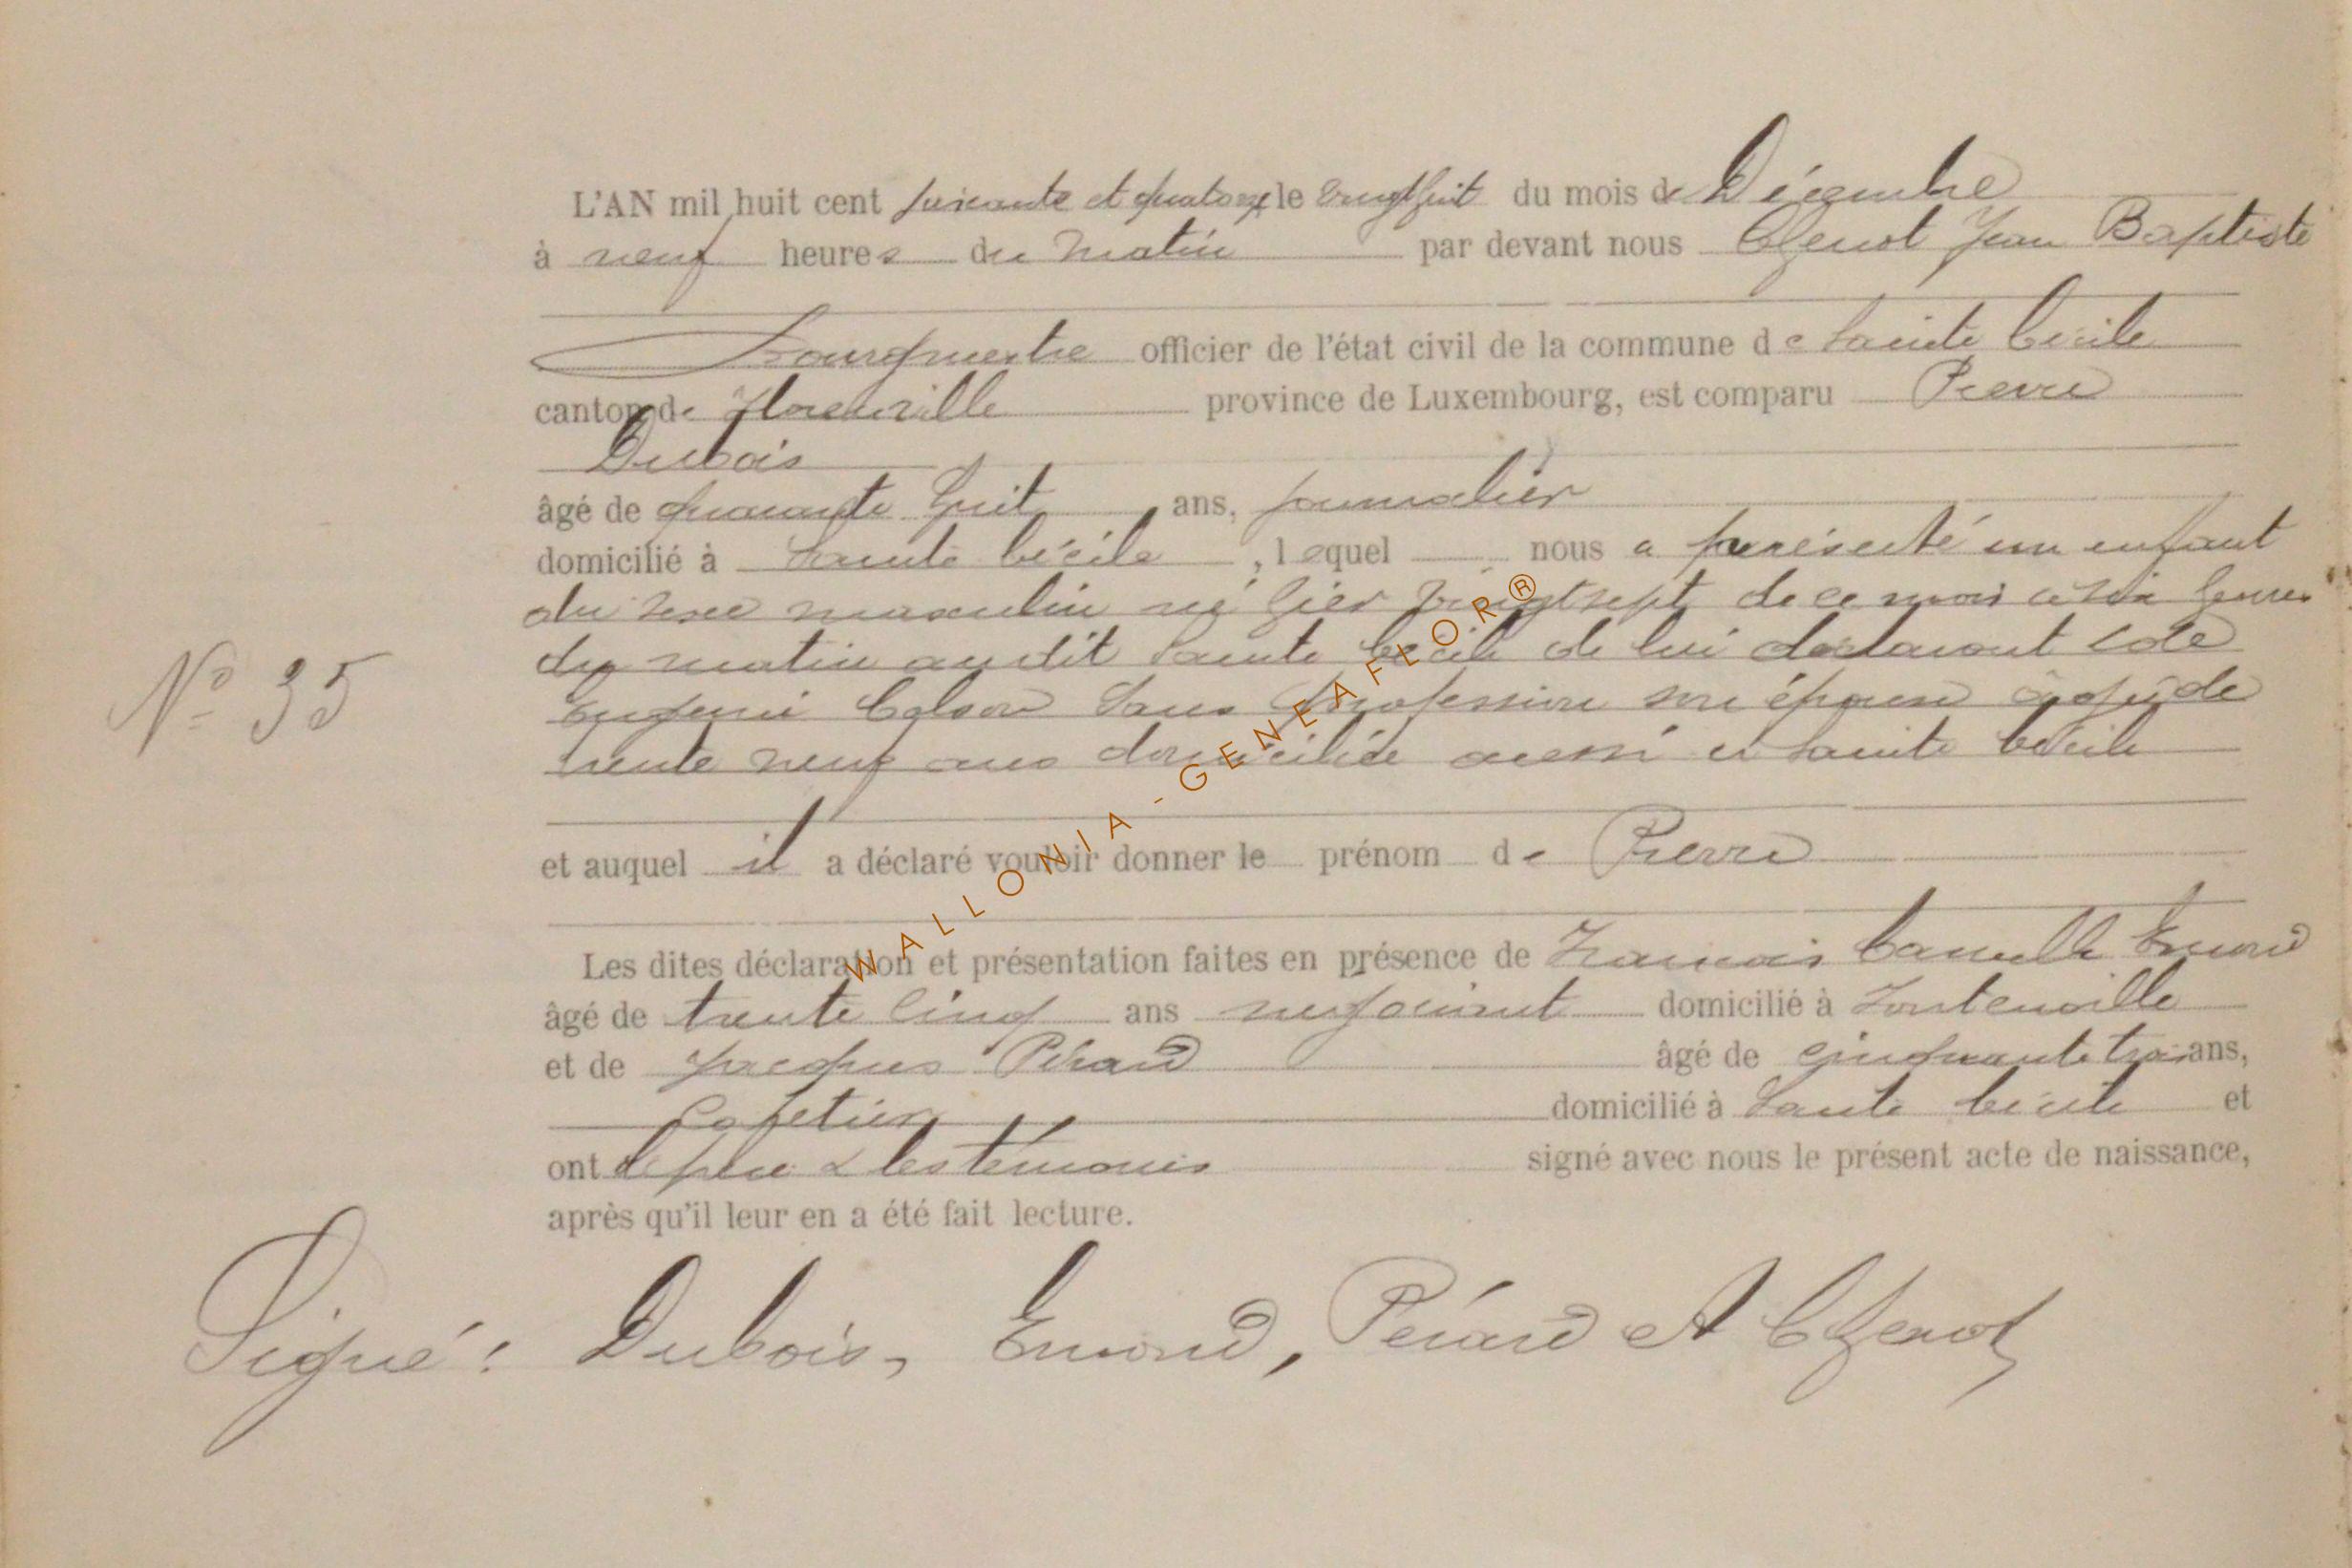 L'AN mil huit cent soixante et quatorze le vingt huit du mois de Décembre
à neuf heures du matin par devant nous Chenot Jean Baptiste
Bourgmestre officier de l'état civil de la commune de Sainte Cécile
canton de Florenville province de Luxembourg, est comparu Pierre
Dubois
âgé de quarante huit ans, journalier
domicilié à Sainte Cécile, lequel nous a présenté un enfant
du sexe masculin né hier vingt sept de ce mois à six heures
N° 35
du matin audit Sainte Cécile de lui déclarant et de
Eugenie Colson sans profession son épouse agée de
trente neuf ans domiciliée aussi à Sainte Cécile
et auquel il a déclaré vouloir donner le prénom de Pierre
Les dites déclaration et présentation faites en présence de Francois Camille Emond
âgé de trente cinq ans negociant domicilié à Fontenoille
et de Jacques Pérard âgé de cinquante trois ans,
Cafetier domicilié à Sainte Cécile et
ont le père & les témoins signé avec nous le présent acte de naissance,
après qu'il leur en a été fait lecture.
Signé: Dubois, Emond, Pérard et Chenot
WALLONIA-GENEAFLOR®